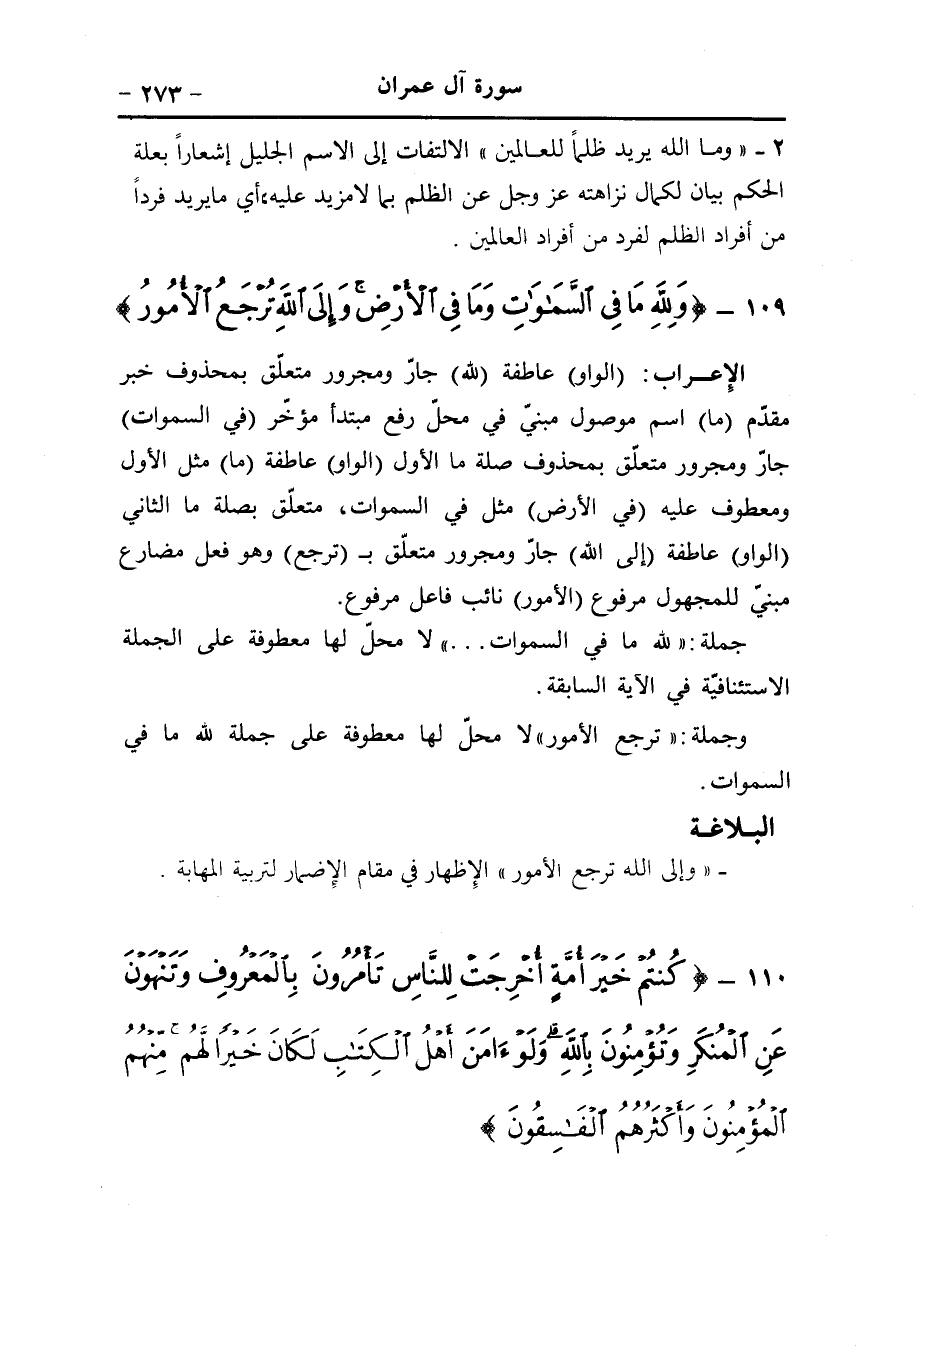 سورة آل عمران
- ٢٧٣ -
٢ - « وما الله يريد ظلماً للعالمين » الالتفات إلى الاسم الجليل إشعاراً بعلة
الحكم بيان لكمال نزاهته عز وجل عن الظلم بما لامزيد عليه،أي مايريد فرداً
من أفراد الظلم لفرد من أفراد العالمين .
١٠٩ - ﴿ وَلِلَّهِ مَا فِى ٱلسَّمَـٰوَٰتِ وَمَا فِى ٱلْأَرْضِ ۚ وَإِلَى ٱللَّهِ تُرْجَعُ ٱلْأُمُورُ ﴾
الإعـراب: (الواو) عاطفة (لله) جارّ ومجرور متعلّق بمحذوف خبر
مقدّم (ما) اسم موصول مبنيّ في محلّ رفع مبتدأ مؤخّر (في السموات)
جارّ ومجرور متعلّق بمحذوف صلة ما الأول (الواو) عاطفة (ما) مثل الأول
ومعطوف عليه (في الأرض) مثل في السموات، متعلّق بصلة ما الثاني
(الواو) عاطفة (إلى الله) جارّ ومجرور متعلّق بـ (ترجع) وهو فعل مضارع
مبنيّ للمجهول مرفوع (الأمور) نائب فاعل مرفوع.
جملة:« لله ما في السموات...» لا محلّ لها معطوفة على الجملة
الاستئنافيّة في الآية السابقة.
وجملة:« ترجع الأمور»لا محلّ لها معطوفة على جملة لله ما في
السموات.
البـلاغـة
- « وإلى الله ترجع الأمور » الإظهار في مقام الإضمار لتربية المهابة .
١١٠ - ﴿ كُنتُمْ خَيْرَ أُمَّةٍ أُخْرِجَتْ لِلنَّاسِ تَأْمُرُونَ بِٱلْمَعْرُوفِ وَتَنْهَوْنَ
عَنِ ٱلْمُنكَرِ وَتُؤْمِنُونَ بِٱللَّهِ ۗ وَلَوْ ءَامَنَ أَهْلُ ٱلْكِتَـٰبِ لَكَانَ خَيْرًا لَّهُم ۚ مِّنْهُمُ
ٱلْمُؤْمِنُونَ وَأَكْثَرُهُمُ ٱلْفَـٰسِقُونَ ﴾